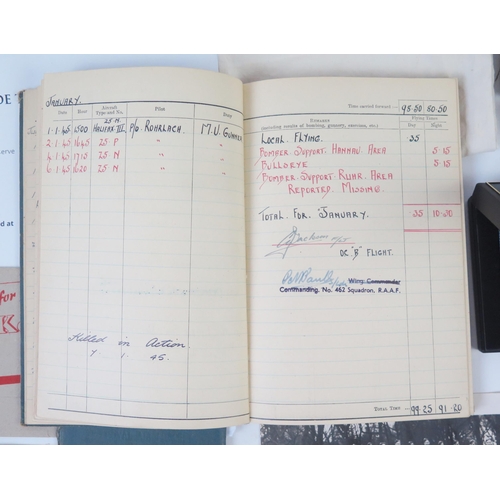 JANUARY.
DATE HOUR Aircraft Type and No. PILOT DUTY
1.1.45 1500 25 M. HALIFAX III. P/O. ROHRLACH. M.U. GUNNER
2.1.45 1645 25 P " "
4.1.45 1715 25 N " "
6.1.45 1620 25 N " "
Killed in Action
7 1. 45.
Time carried forward:— 98.50 80.50
REMARKS
(including results of bombing, gunnery, exercises, etc.)
Flying Times
Day Night
LOCAL FLYING. 35
BOMBER SUPPORT. HANNAU AREA 5.15
BULLSEYE 5.15
BOMBER SUPPORT RUHR. AREA
REPORTED MISSING.
TOTAL FOR JANUARY. 35 10.30
OC "B" FLIGHT.
Wing Commander
Commanding, No. 462 Squadron, R.A.A.F.
TOTAL TIME 99.25 91.20
DE
erve
d at
for